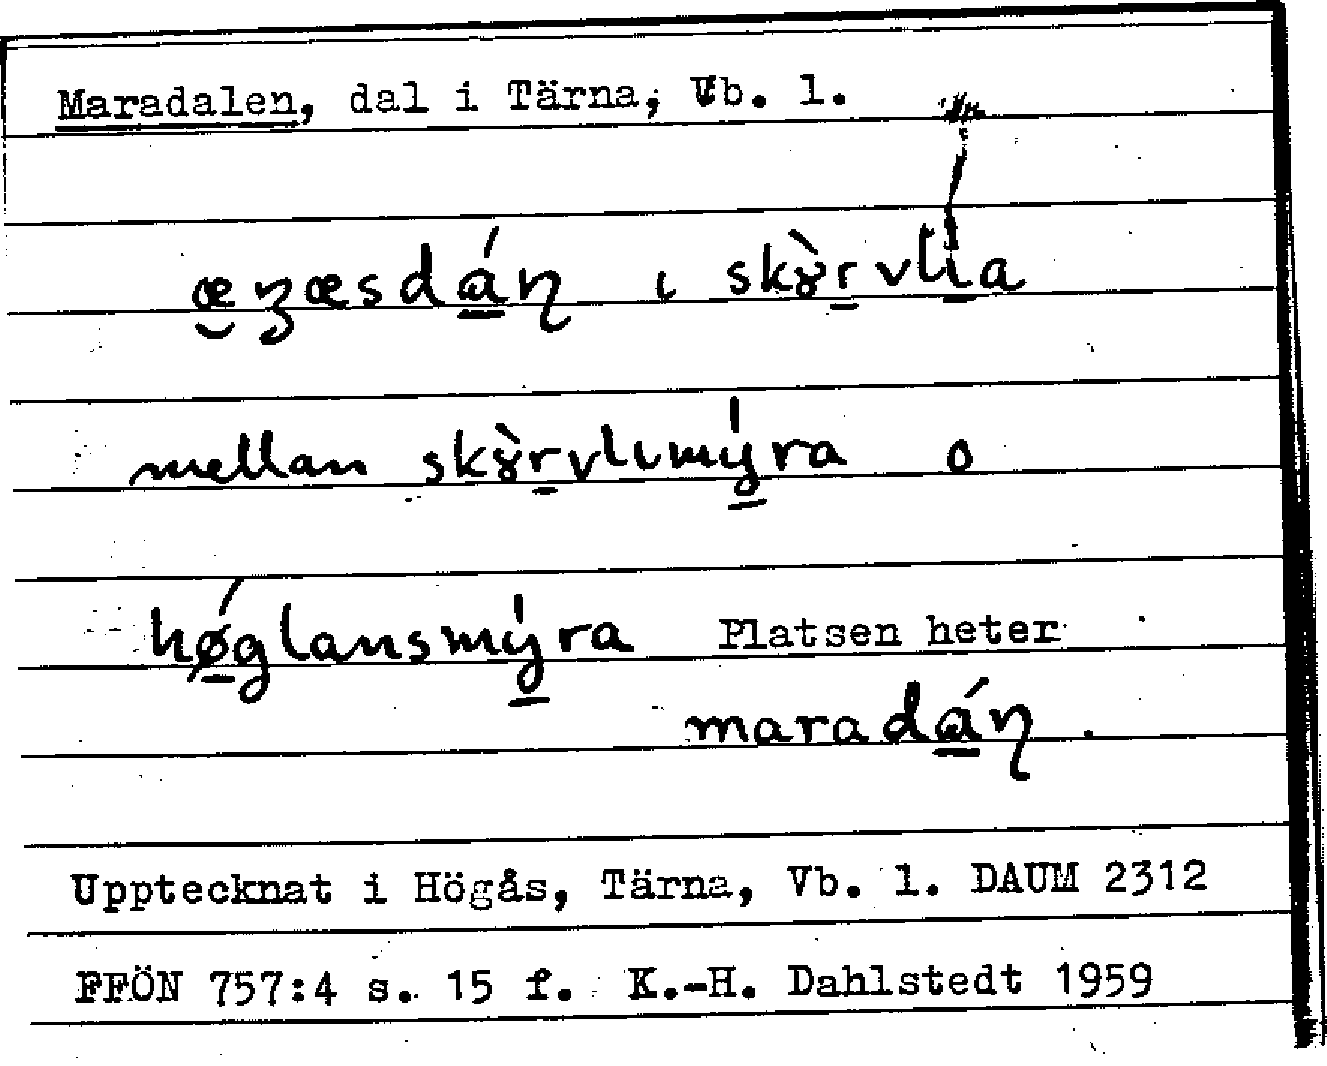 Maradalen, dal i Tärna, Vb. l.
æʒæsdán ɩ skɣ̀rvlia
mellan skɣ̀rvlɩmýra o
høǵlansmýra Platsen heter
maradáη.
Upptecknat i Högås, Tärna, Vb. l. DAUM 2312
FFÖN 757:4 s. 15 f. K.-H. Dahlstedt 1959